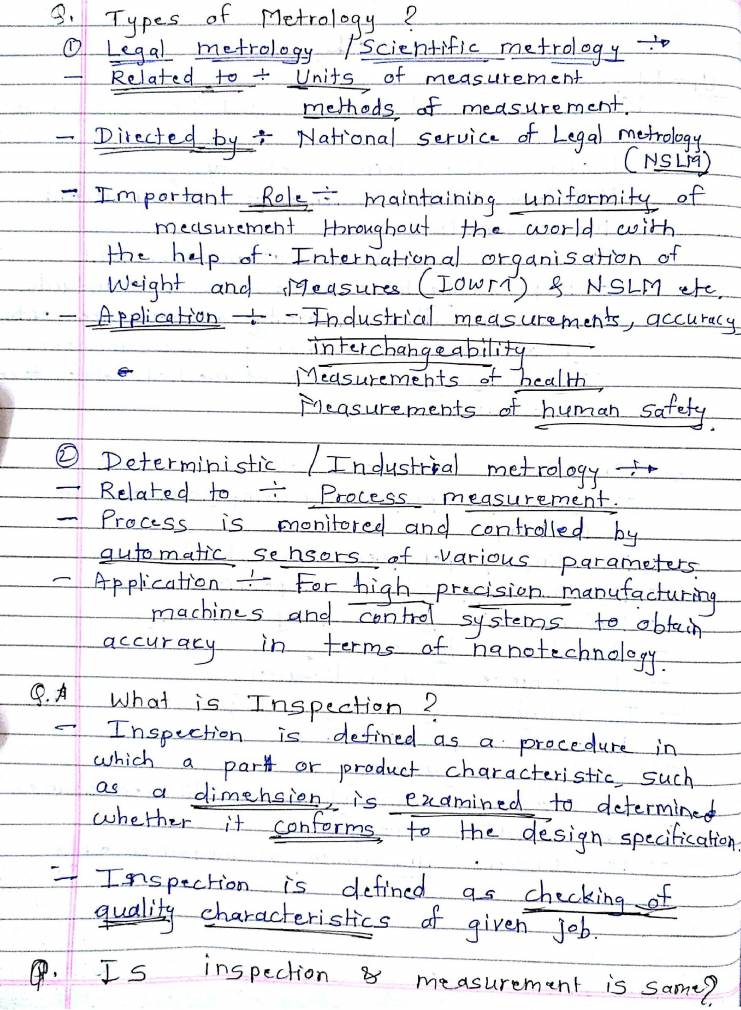 Q. Types of Metrology ?
① Legal metrology / Scientific metrology ÷→
- Related to ÷ Units of measurement
methods of measurement.
- Directed by ÷ National service of Legal metrology
(NSLM)
- Important Role ÷ maintaining uniformity of
measurement throughout the world with
the help of International organisation of
Weight and Measures (IOWM) & NSLM etc.
- Application ÷ - Industrial measurements, accuracy
interchangeability
Measurements of health
Measurements of human safety.
② Deterministic / Industrial metrology ÷→
- Related to ÷ Process measurement.
- Process is monitored and controlled by
automatic sensors of various parameters.
- Application ÷ For high precision manufacturing
machines and control systems to obtain
accuracy in terms of nanotechnology.
Q. What is Inspection ?
- Inspection is defined as a procedure in
which a part or product characteristic, such
as a dimension, is examined to determined
whether it conforms to the design specification.
- Inspection is defined as checking of
quality characteristics of given job.
Q. Is inspection & measurement is same?